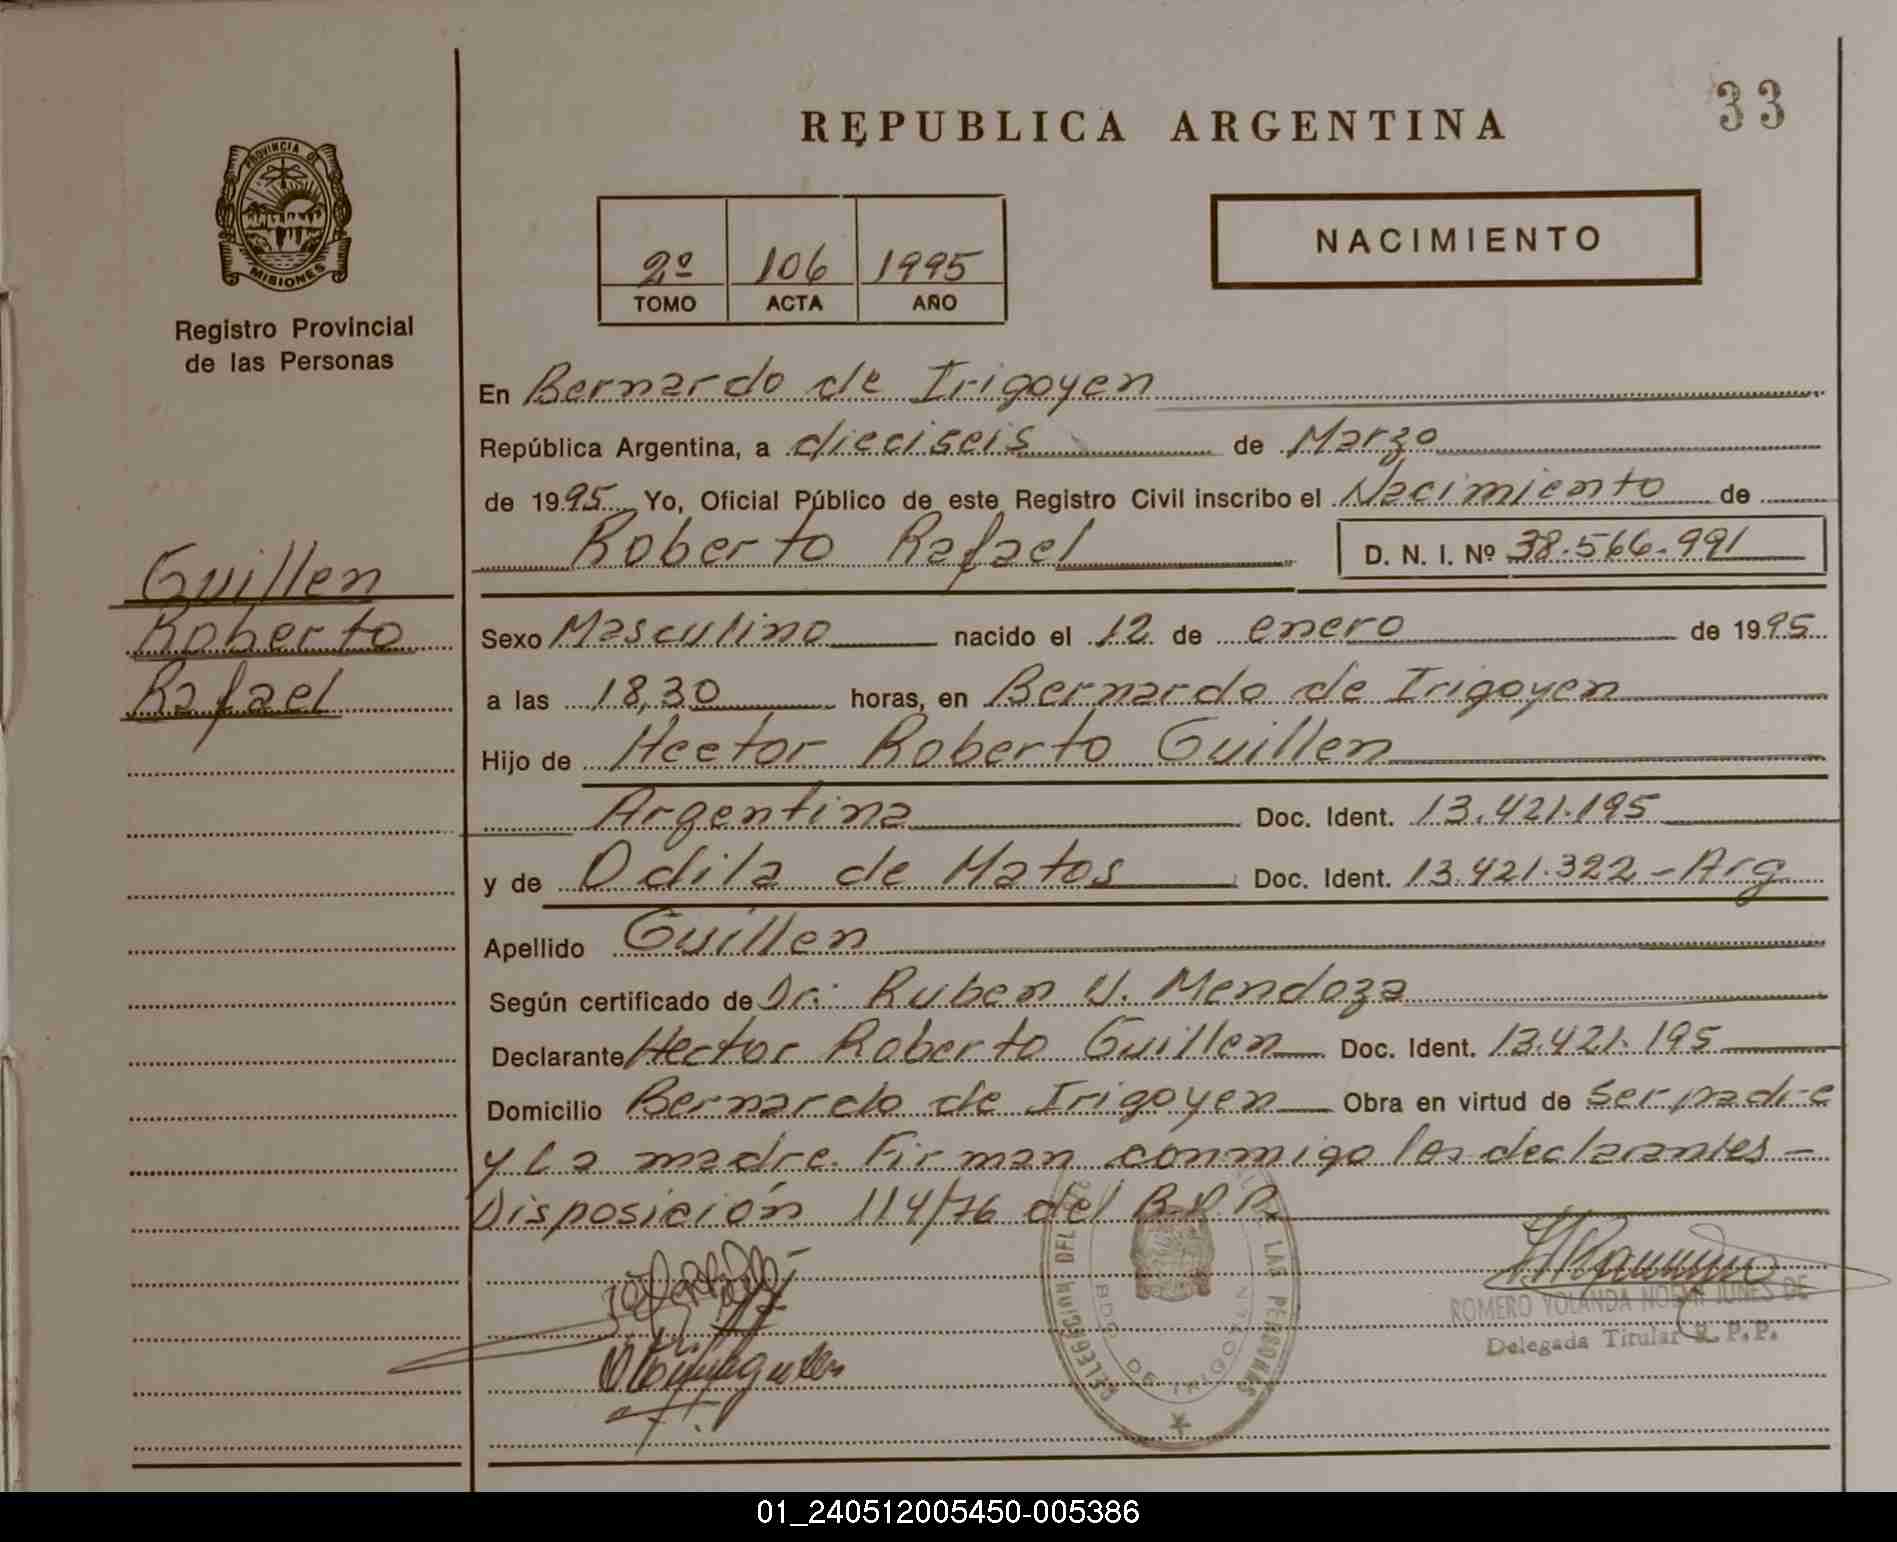 REPUBLICA ARGENTINA
33
PROVINCIA DE
MISIONES
Registro Provincial
de las Personas
2º 106 1995
TOMO ACTA AÑO
NACIMIENTO
En Bernardo de Irigoyen
República Argentina, a dieciseis de Marzo
de 1995 Yo, Oficial Público de este Registro Civil inscribo el Nacimiento de
Roberto Rafael D. N. I. Nº 38.566.991
Guillen
Roberto
Rafael
Sexo Masculino nacido el 12 de enero de 1995
a las 18,30 horas, en Bernardo de Irigoyen
Hijo de Hector Roberto Guillen
Argentina Doc. Ident. 13.421.195
y de Odila de Matos Doc. Ident. 13.421.322 - Arg
Apellido Guillen
Según certificado de Dr. Ruben V. Mendoza
Declarante Hector Roberto Guillen Doc. Ident. 13.421.195
Domicilio Bernardo de Irigoyen Obra en virtud de ser padre
y la madre. Firman conmigo los declarantes -
Disposición 114/76 del R.P.P.
DELEGACION DEL LAS PERSONAS
BDO. DE IRIGOYEN
ROMERO YOLANDA NOEMI JUNES DE
Delegada Titular R. P. P.
01_240512005450-005386